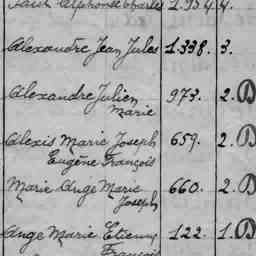 Alphonse Charles 1.954. 4.
Alexandre Jean Jules 1.338. 3.
Alexandre Julien 973. 2. D
Marie
Alexis Marie Joseph 659. 2. D
Eugène François
Marie Ange Marie 660. 2. D
Joseph
Ange Marie Etienne 122. 1. D
François